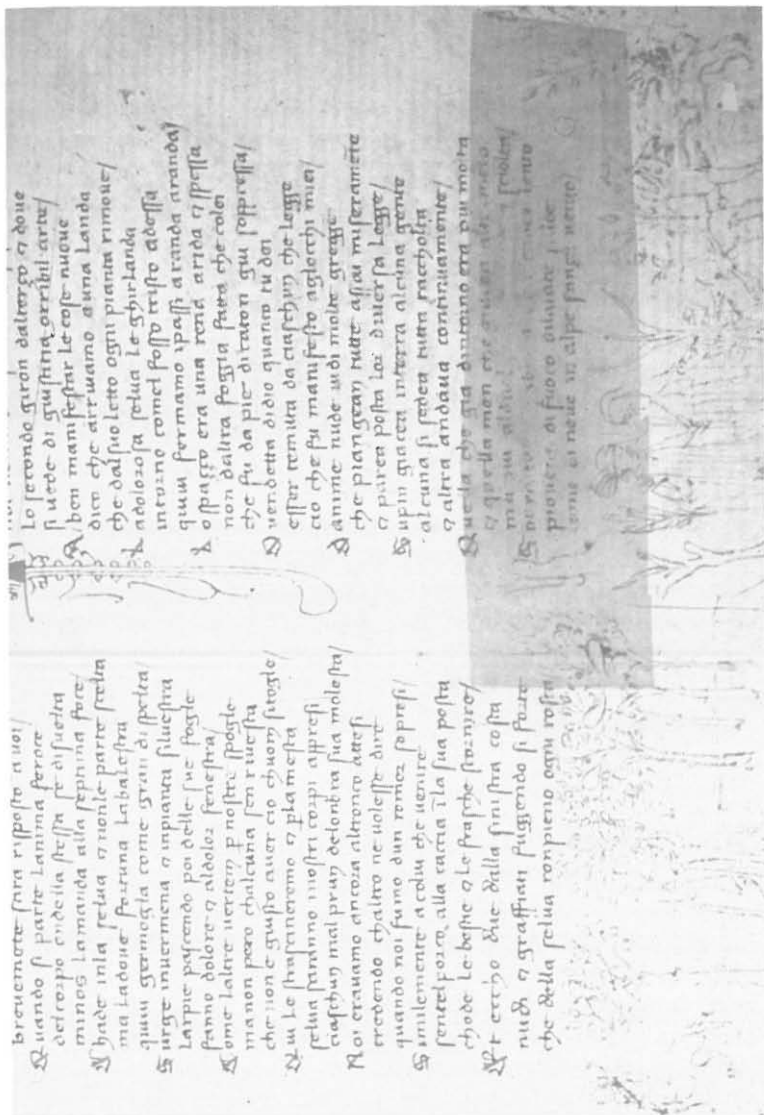 breuemente sara risposto a uoi
Quando si parte lanima feroce
delcorpo ondella stessa se disuelta
minos lamanda alla septima foce
Chade inla selua et nonle parte scelta
ma ladoue fortuna labalestra
quiui germoglia come gran dispelta
Surge inuermena et inpianta siluestra
larpie pascendo poi delle sue foglie
fanno dolore et aldolor fenestra
Come laltre uerrem p nostre spoglie
manon pero chalcuna sen riuesta
che none giusto auer cio chuom sitoglie
Qui le strascineremo et plamesta
selua saranno inostri corpi appesi
ciaschun nalprun delombra sua molesta
Noi erauamo ancora altronco attesi
credendo chaltro ne uolesse dire
quando noi fumo dun romor sopresi
Similemente acolui che uenire
sentelporco alla caccia ila sua posta
chode le bestie et le frasche stormire
Et eccho due dalla sinistra costa
nudi et graffiati fuggendo si forte
che della selua ronpieno ogni rosta
Lo secondo giron dalterço et doue
si uede di giustitia orribil arte
A ben manifestar le cose nuoue
dico che arriuamo a una landa
che dalsuo letto ogni pianta rimoue
La dolorosa selua le ghirlanda
intorno comel fosso tristo adessa
quiui fermamo ipassi aranda aranda
Lo spaçço era una rena arida et spessa
non daltra foggia fatta che colei
che fu da pie di caton gia soppressa
O uendetta didio quanto tu dei
esser temuta da ciaschun che legge
cio che fu manifesto aglocchi miei
Danime nude uidi molte gregge
che piangean tutte assai miseramete
et parea posta lor diuersa legge
Supin giacea interra alcuna gente
alcuna si sedea tutta racholta
et altra andaua continuamente
Quella che gia dintorno era piu molta
et quella men che
piouean di fuoco dilatate
come di neue in alpe sança uento